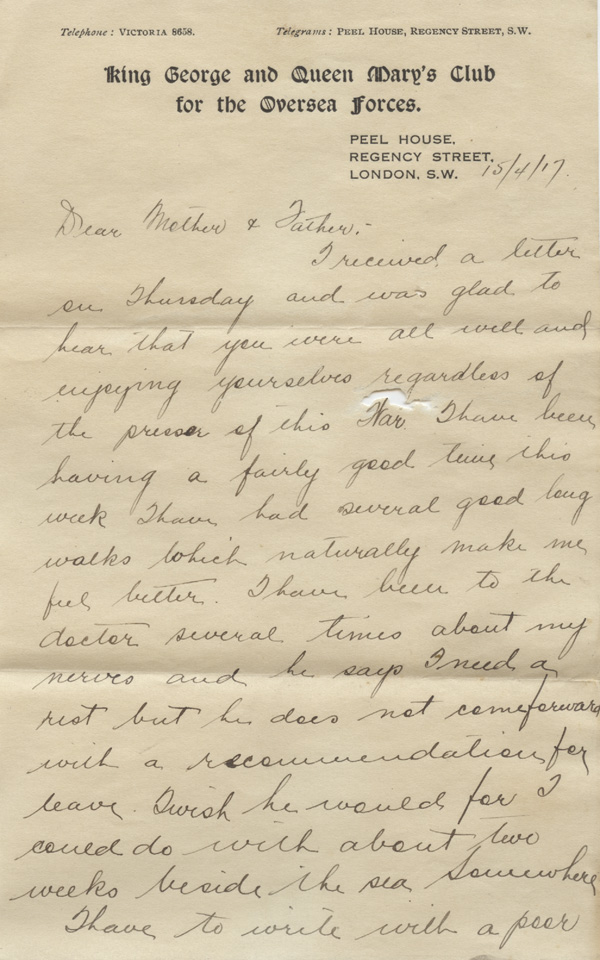 Telephone: VICTORIA 8658. Telegrams: PEEL HOUSE, REGENCY STREET, S.W.
King George and Queen Mary's Club
for the Oversea Forces.
PEEL HOUSE,
REGENCY STREET,
LONDON, S.W. 15/4/17.
Dear Mother & Father:-
I received a letter
on Thursday and was glad to
hear that you were all well and
enjoying yourselves regardless of
the of this War. I have been
having a fairly good time this
week I have had several good long
walks which naturally make me
feel better. I have been to the
doctor several times about my
nerves and he says I need a
rest but he does not come forward
with a recommendation for
leave. I wish he would for I
could do with about two
weeks beside the sea somewhere
I have to write with a poor